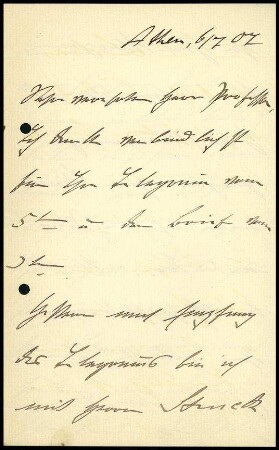 Athen, 6/7 07
Sehr verehrter Herr Professor,
Ich danke verbindlichst
für Ihr Telegramm vom
5ten u den Brief vom
3ten
Gestern nach Empfang
des Telegramms bin ich
mit Herrn Struck